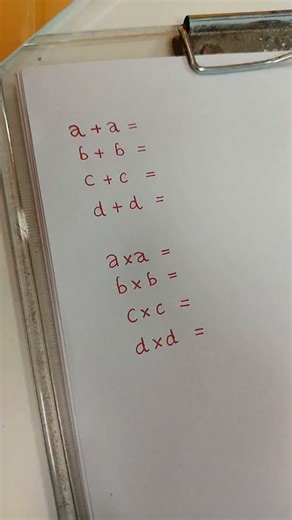 a + a =
b + b =
c + c =
d + d =
a x a =
b x b =
c x c =
d x d =